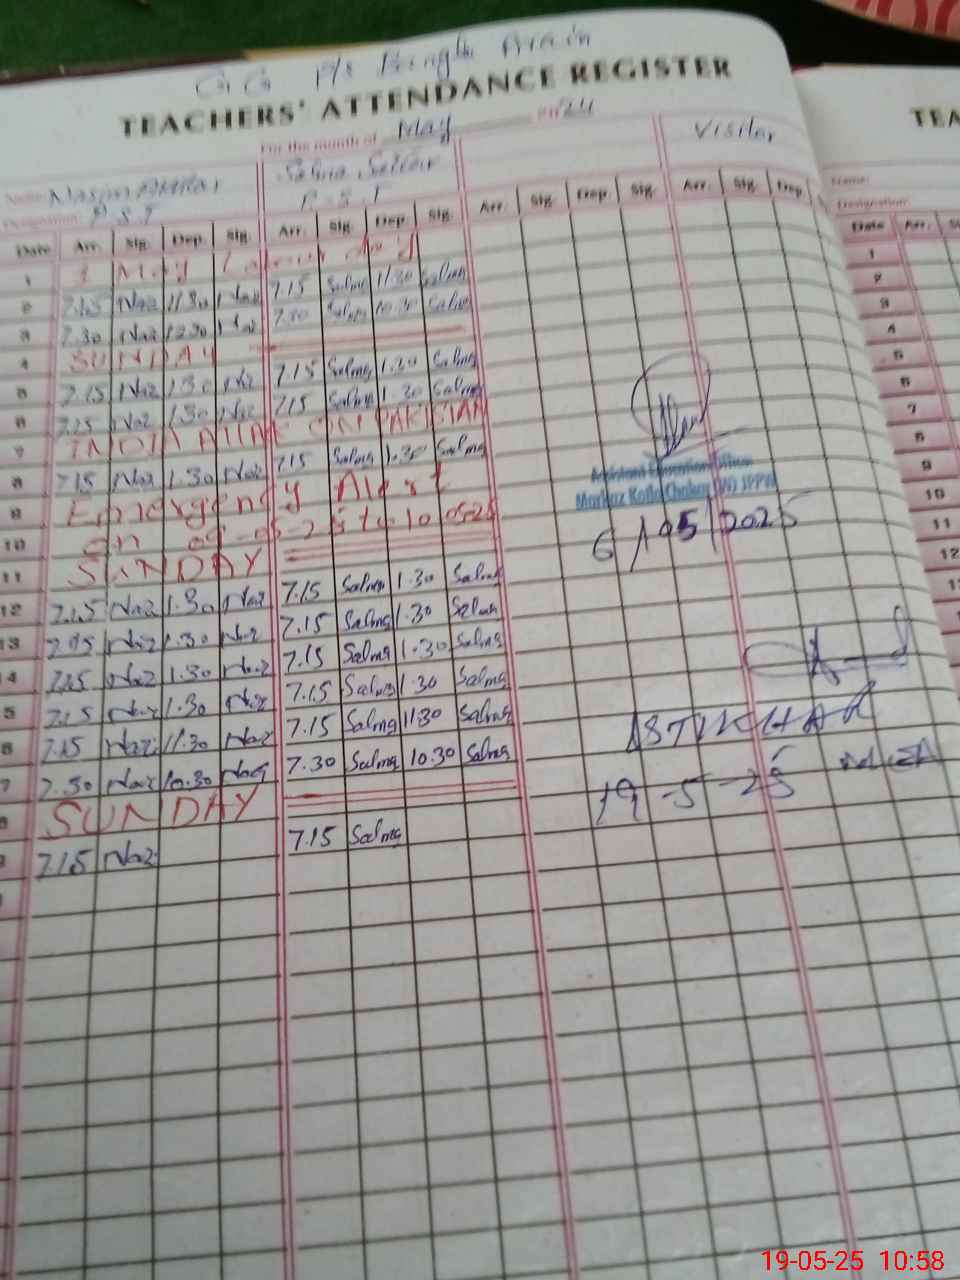 GG P/S Bingla Arain
TEACHERS' ATTENDANCE REGISTER
For the month of May
Visitor
Name Nasim Akhtar Salma Sattar
Designation P.S.T P.S.T
Date Arr. Sig. Dep. Sig. Arr. Sig. Dep. Sig. Arr. Sig. Dep. Sig. Arr. Sig. Dep.
1 1 May Labour day
2 7.15 Naz 11.30 Naz 7.15 Salma 11.30 Salma
3 7.30 Naz Naz 7.30 Salma 10.30 Salma
4 SUNDAY
5 7.15 Naz 1.30 Naz 7.15 Salma 1.30 Salma
6 7.15 Naz 1.30 Naz 7.15 Salma 1.30 Salma
7 INDIA ATTAK ON PAKISTAN
8 7.15 Naz 1.30 Naz 7.15 Salma 1.30 Salma
9 Emergency Alert
10 on 09-05-25 to 10-05-25
11 SUNDAY
12 7.15 Naz 1.30 Naz 7.15 Salma 1.30 Salma
13 7.15 Naz 1.30 Naz 7.15 Salma 1.30 Salma
4 7.15 Naz 1.30 Naz 7.15 Salma 1.30 Salma
5 7.15 Naz 1.30 Naz 7.15 Salma 1.30 Salma
6 7.15 Naz 11.30 Naz 7.15 Salma 11.30 Salma
7 7.30 Naz 10.30 Naz 7.30 Salma 10.30 Salma
SUNDAY
7.15 Naz 7.15 Salma
Assistant Education Officer
Markaz
6/05/2025
19-5-25
TEA
Name:
Designation:
Date Arr.
1
2
3
4
5
6
7
8
9
10
11
12
19-05-25 10:58